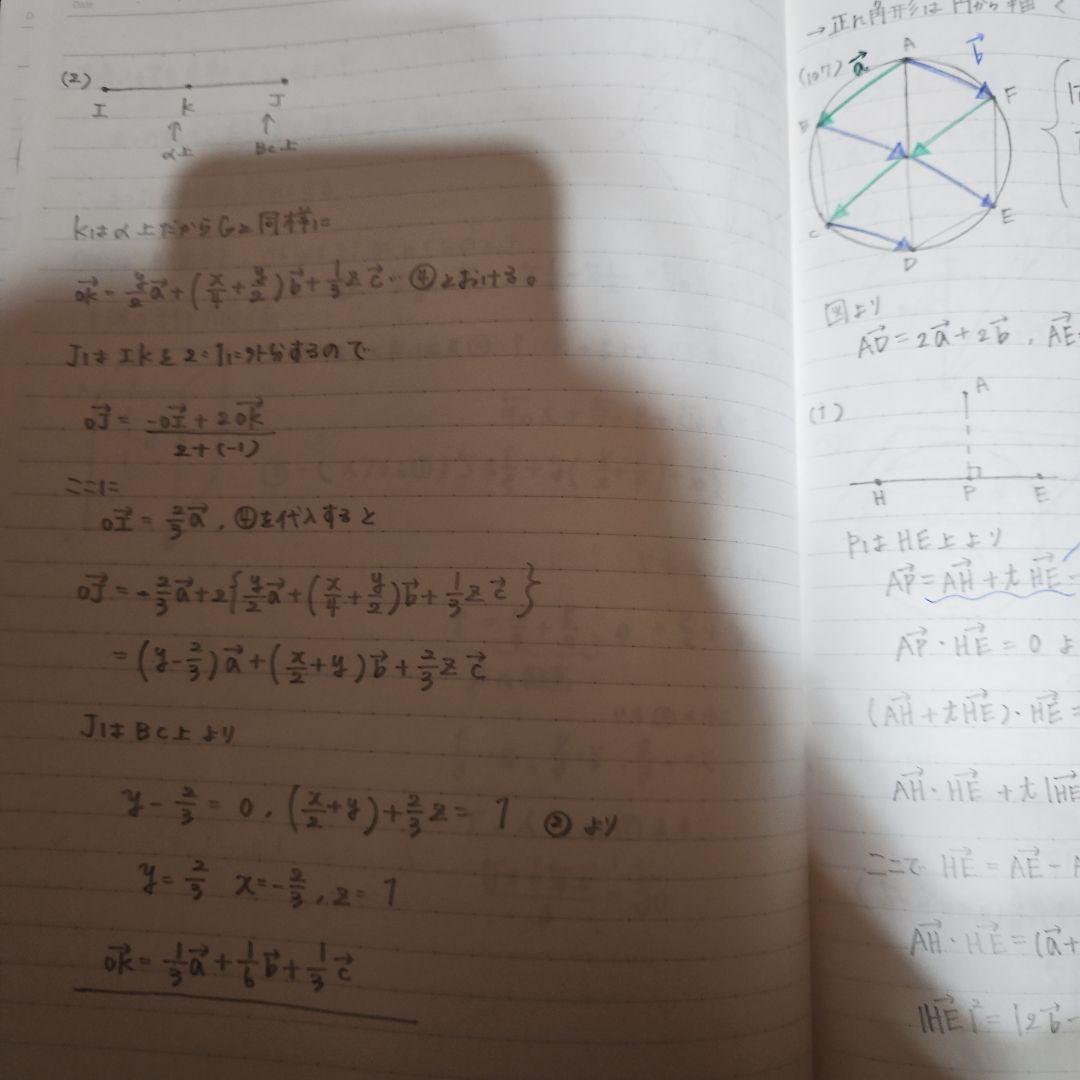 Date
(2)
I K J
↑ ↑
α上 BC上
Kはα上だからGと同様に
→OK = y/2 →a + (x/4 + y/2) →b + 1/3 z →c … ④とおける。
JはIKを2:1に外分するので
→OJ = (-→OI + 2→OK) / (2+(-1))
ここに
→OI = 2/3 →a , ④を代入すると
→OJ = -2/3 →a + 2{y/2 →a + (x/4 + y/2) →b + 1/3 z →c}
= (y - 2/3) →a + (x/2 + y) →b + 2/3 z →c
JはBC上より
y - 2/3 = 0 , (x/2 + y) + 2/3 z = 1 ②より
y = 2/3 x = -2/3 , z = 1
→OK = 1/3 →a + 1/6 →b + 1/3 →c
→正n角形は円から描く
(107) →a A →b
B F
C E
D
図より
→AD = 2→a + 2→b , →AE
(1)
A
H P E
PはHE上より
→AP = →AH + t→HE
→AP・→HE = 0 よ
(→AH + t→HE)・→HE =
→AH・→HE + t|→HE
ここで →HE = →AE -
→AH・→HE = (→a +
|→HE|² = |2→b -